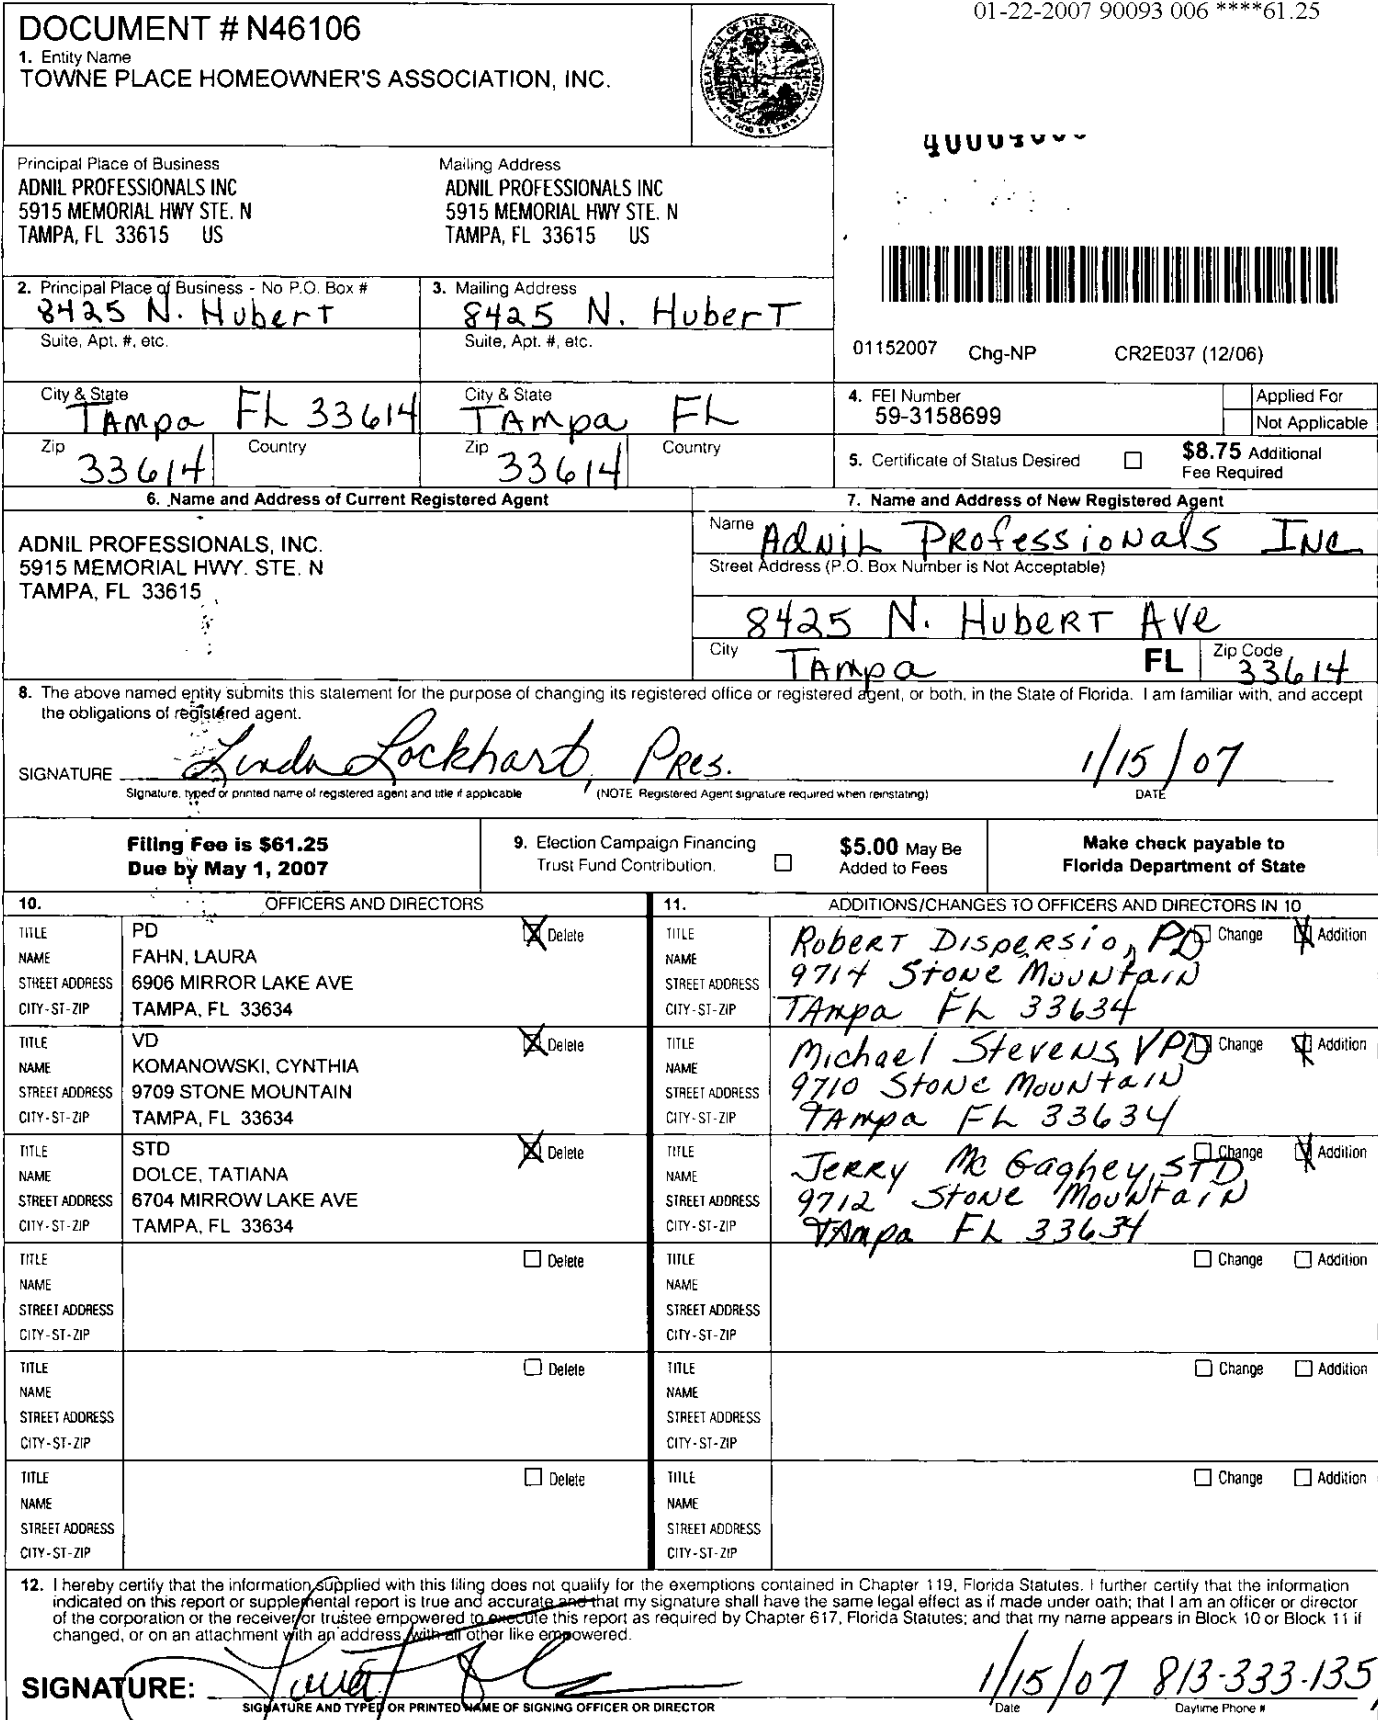 DOCUMENT # N46106
01-22-2007 90093 006 ****61.25
1. Entity Name
TOWNE PLACE HOMEOWNER'S ASSOCIATION, INC.
Principal Place of Business
ADNIL PROFESSIONALS INC
5915 MEMORIAL HWY STE. N
TAMPA, FL 33615 US
Mailing Address
ADNIL PROFESSIONALS INC
5915 MEMORIAL HWY STE. N
TAMPA, FL 33615 US
2. Principal Place of Business - No P.O. Box #
8425 N. Hubert
3. Mailing Address
8425 N. Hubert
Suite, Apt. #, etc.
Suite, Apt. #, etc.
01152007 Chg-NP CR2E037 (12/06)
City & State
Tampa FL 33614
City & State
Tampa FL
Zip
33614
Country
Zip
33614
Country
4. FEI Number
59-3158699
Applied For
Not Applicable
5. Certificate of Status Desired
$8.75 Additional
Fee Required
6. Name and Address of Current Registered Agent
ADNIL PROFESSIONALS, INC.
5915 MEMORIAL HWY. STE. N
TAMPA, FL 33615
7. Name and Address of New Registered Agent
Name Adnil Professionals Inc
Street Address (P.O. Box Number is Not Acceptable)
8425 N. Hubert Ave
City Tampa FL Zip Code 33614
8. The above named entity submits this statement for the purpose of changing its registered office or registered agent, or both, in the State of Florida. I am familiar with, and accept
the obligations of registered agent.
SIGNATURE Linda Lockhart, Pres. 1/15/07
Signature, typed or printed name of registered agent and title if applicable (NOTE Registered Agent signature required when reinstating) DATE
Filing Fee is $61.25
Due by May 1, 2007
9. Election Campaign Financing
Trust Fund Contribution.
$5.00 May Be
Added to Fees
Make check payable to
Florida Department of State
10. OFFICERS AND DIRECTORS
11. ADDITIONS/CHANGES TO OFFICERS AND DIRECTORS IN 10
TITLE PD Delete
NAME FAHN, LAURA
STREET ADDRESS 6906 MIRROR LAKE AVE
CITY-ST-ZIP TAMPA, FL 33634
TITLE Change Addition
NAME Robert Dispersio, PD
STREET ADDRESS 9714 Stone Mountain
CITY-ST-ZIP Tampa FL 33634
TITLE VD Delete
NAME KOMANOWSKI, CYNTHIA
STREET ADDRESS 9709 STONE MOUNTAIN
CITY-ST-ZIP TAMPA, FL 33634
TITLE Change Addition
NAME Michael Stevens, VPD
STREET ADDRESS 9710 Stone Mountain
CITY-ST-ZIP Tampa FL 33634
TITLE STD Delete
NAME DOLCE, TATIANA
STREET ADDRESS 6704 MIRROW LAKE AVE
CITY-ST-ZIP TAMPA, FL 33634
TITLE Change Addition
NAME Jerry Mc Gaghey, STD
STREET ADDRESS 9712 Stone Mountain
CITY-ST-ZIP Tampa FL 33634
TITLE Delete
NAME
STREET ADDRESS
CITY-ST-ZIP
TITLE Change Addition
NAME
STREET ADDRESS
CITY-ST-ZIP
TITLE Delete
NAME
STREET ADDRESS
CITY-ST-ZIP
TITLE Change Addition
NAME
STREET ADDRESS
CITY-ST-ZIP
TITLE Delete
NAME
STREET ADDRESS
CITY-ST-ZIP
TITLE Change Addition
NAME
STREET ADDRESS
CITY-ST-ZIP
12. I hereby certify that the information supplied with this filing does not qualify for the exemptions contained in Chapter 119, Florida Statutes. I further certify that the information
indicated on this report or supplemental report is true and accurate and that my signature shall have the same legal effect as if made under oath; that I am an officer or director
of the corporation or the receiver or trustee empowered to execute this report as required by Chapter 617, Florida Statutes; and that my name appears in Block 10 or Block 11 if
changed, or on an attachment with an address, with all other like empowered.
SIGNATURE: 1/15/07 813-333-135
SIGNATURE AND TYPED OR PRINTED NAME OF SIGNING OFFICER OR DIRECTOR Date Daytime Phone #